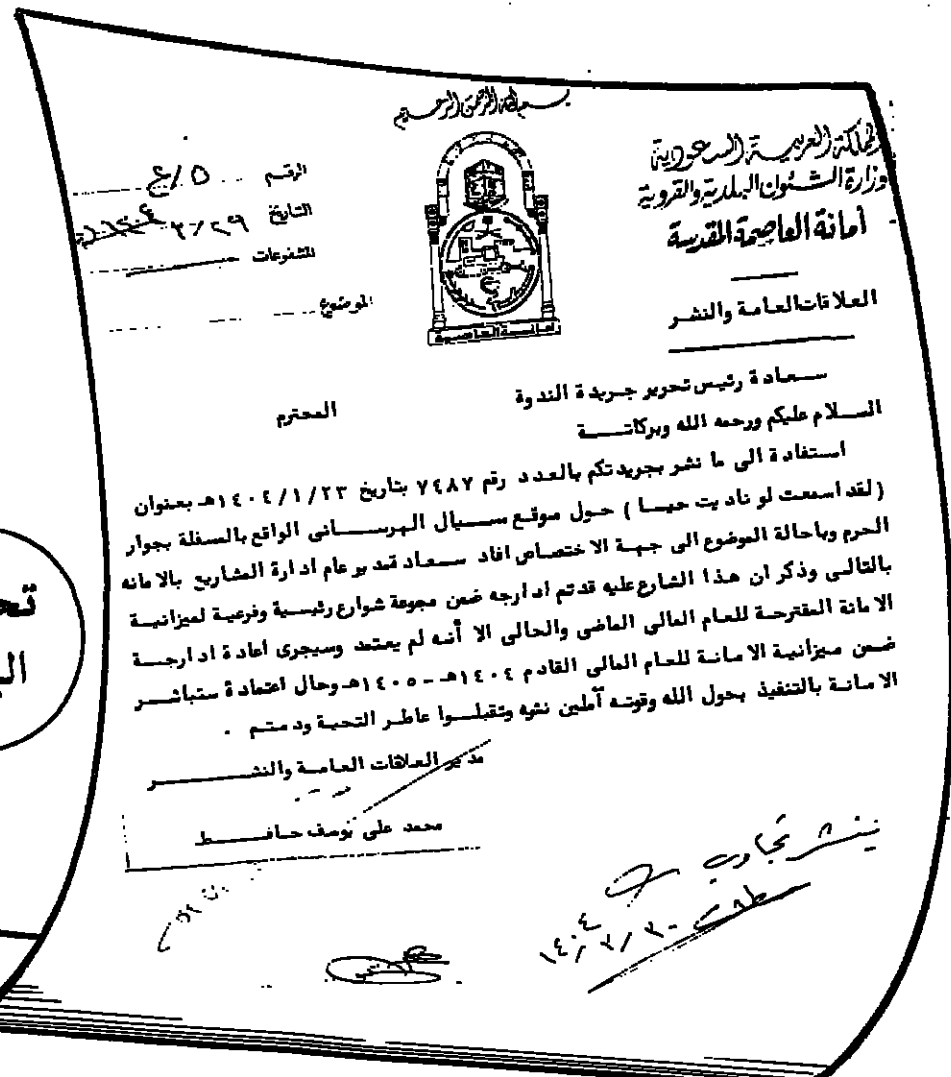 بسم الله الرحمن الرحيم
المملكة العربية السعودية
وزارة الشئون البلدية والقروية
أمانة العاصمة المقدسة
العلاقات العامة والنشر
الرقم ٥/ع
التاريخ ٣/٢٩
المشفوعات
الموضوع
أمانة العاصمة
ســعادة رئيس تحرير جريدة الندوة المحترم
الســلام عليكم ورحمه الله وبركاتــــة
استفادة الى ما نشر بجريدتكم بالعدد رقم ٧٤٨٧ بتاريخ ١٤٠٤/١/٢٣هـ بعنوان
( لقد اسمعت لو ناديت حيــا ) حول موقع ســـبال الهرســـانى الواقع بالمسفلة بجوار
الحرم وباحالة الموضوع الى جهة الاختصاص افاد ســعاد تمدير عام ادارة المشاريع بالامانه
بالتالى وذكر ان هذا الشارع عليه قدتم ادارجه ضمن مجوعة شوارع رئيسية وفرعية لميزانية
الامانة المقترحة للعام المالى الماضى والحالى الا أنه لم يعتمد وسيجرى اعادة ادارجــة
ضمن ميزانية الامانة للعام المالى القادم ١٤٠٤هـ - ١٤٠٥هـ وحال اعتمادة ستباشــر
الامانة بالتنفيذ بحول الله وقوته آملين نشره وتقبلــوا عاطر التحية ودمتم .
مدير العلاقات العامــة والنشــــــر
محمد على يوسف حافــــظ
ينشر تجاوب
١٤٠٤/٣/٣٠
تح
الي